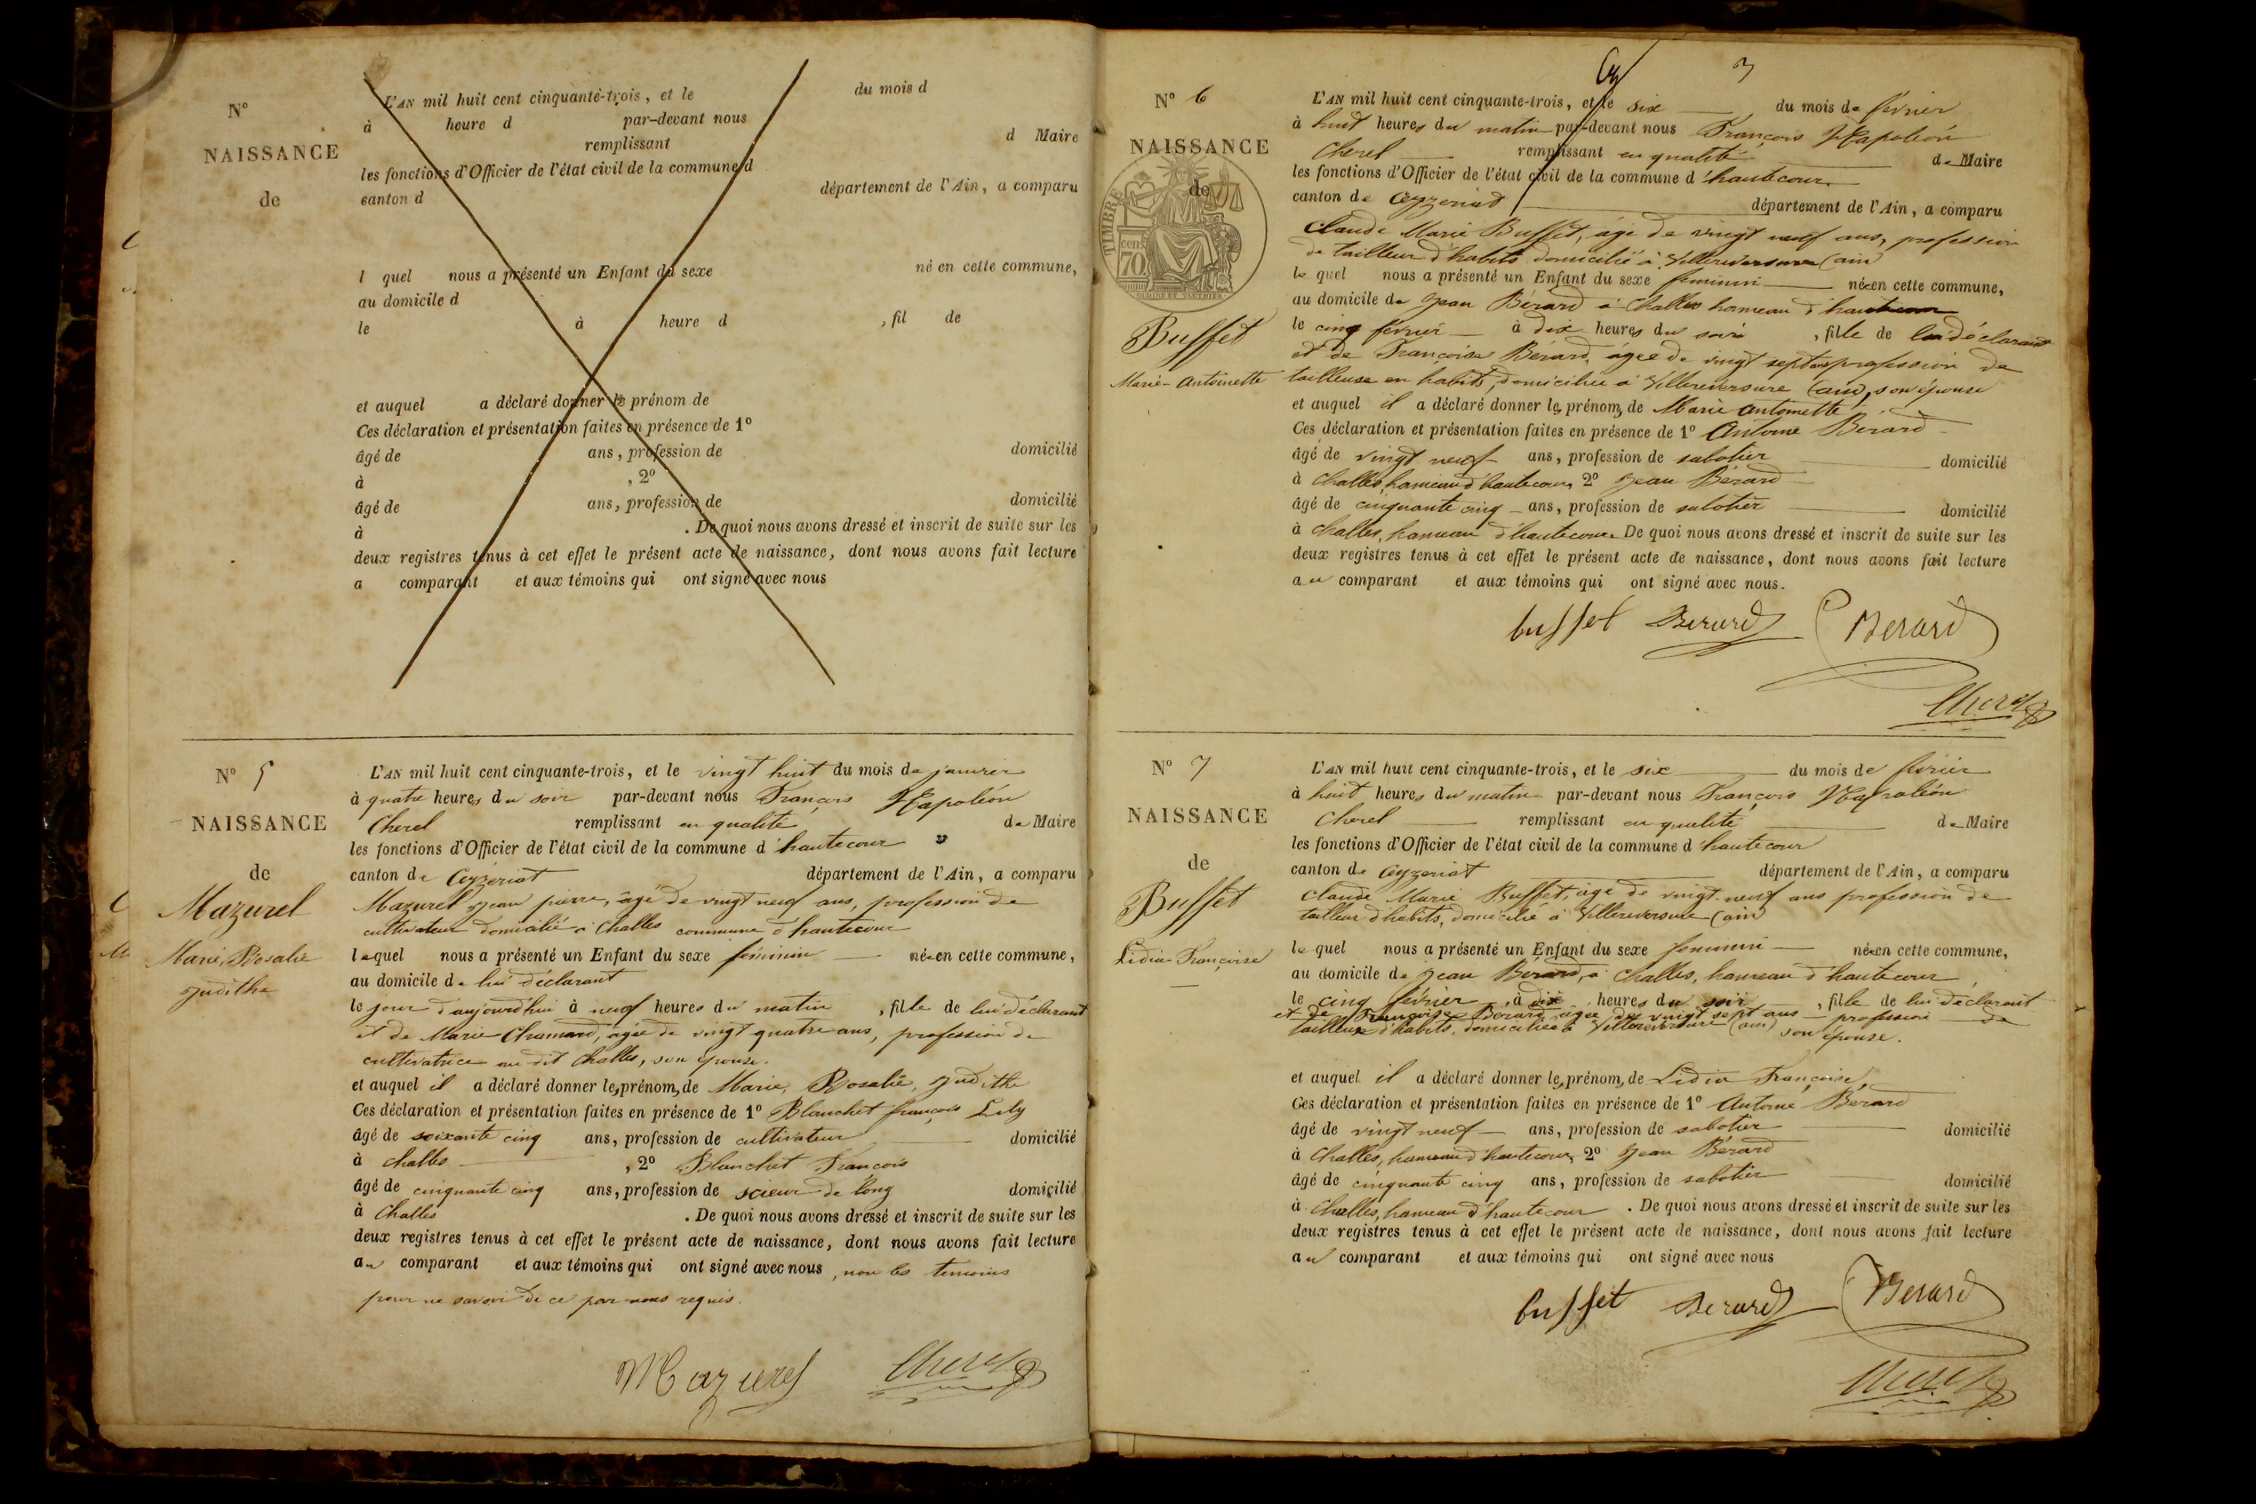 N°
NAISSANCE
de
L'AN mil huit cent cinquante-trois, et le du mois d
à heure d par-devant nous
remplissant d Maire
les fonctions d'Officier de l'état civil de la commune d
canton d département de l'Ain, a comparu
l quel nous a présenté un Enfant du sexe né en cette commune,
au domicile d
le à heure d , fil de
et auquel a déclaré donner le prénom de
Ces déclaration et présentation faites en présence de 1°
âgé de ans, profession de domicilié
à , 2°
âgé de ans, profession de domicilié
à . De quoi nous avons dressé et inscrit de suite sur les
deux registres tenus à cet effet le présent acte de naissance, dont nous avons fait lecture
a comparant et aux témoins qui ont signé avec nous
N° 5
NAISSANCE
de
Mazurel
Marie, Rosalie
Judithe
L'AN mil huit cent cinquante-trois, et le vingt huit du mois de janvier
à quatre heures du soir par-devant nous François Napoléon
Cherel remplissant en qualité de Maire
les fonctions d'Officier de l'état civil de la commune d'hautecour
canton de Ceyzeriat département de l'Ain, a comparu
Mazurel Jean pierre, âgé de vingt neuf ans, profession de
cultivateur domicilié à Challes commune d'hautecour
lequel nous a présenté un Enfant du sexe féminin née en cette commune,
au domicile de lui déclarant
le jour d'aujourd'hui à neuf heures du matin , fille de lui déclarant
et de Marie Chanard, âgée de vingt quatre ans, profession de
cultivatrice au dit Challes, son épouse.
et auquel il a déclaré donner les prénoms de Marie, Rosalie, Judithe
Ces déclaration et présentation faites en présence de 1° Blanchet françois Lily
âgé de soixante cinq ans, profession de cultivateur domicilié
à Challes , 2° Blanchet François
âgé de cinquante cinq ans, profession de scieur de long domicilié
à Challes . De quoi nous avons dressé et inscrit de suite sur les
deux registres tenus à cet effet le présent acte de naissance, dont nous avons fait lecture
au comparant et aux témoins qui ont signé avec nous, non les temoins
pour ne savoir de ce par nous requis.
Mazurel Cherel
3
N° 6
NAISSANCE
de
TIMBRE
70 cent
Buffet
Marie-Antoinette
L'AN mil huit cent cinquante-trois, et le six du mois de février
à huit heures du matin par-devant nous François Napoléon
Cherel remplissant en qualité de Maire
les fonctions d'Officier de l'état civil de la commune d'hautecour
canton de Ceyzeriat département de l'Ain, a comparu
Claude Marie Buffet, âgé de vingt neuf ans, profession
de tailleur d'habits domicilié à Villereversure (ain
lequel nous a présenté un Enfant du sexe feminin née en cette commune,
au domicile de Jean Bérard à Challes hameau d'hautecour
le cinq février à dix heures du soir , fille de lui déclarant
et de Françoise Bérard, âgée de vingt sept ans profession de
tailleuse en habits, domiciliée à Villereversure (ain) son épouse
et auquel il a déclaré donner les prénoms de Marie Antoinette
Ces déclaration et présentation faites en présence de 1° Antoine Bérard
âgé de vingt neuf ans, profession de sabotier domicilié
à Challes, hameau d'hautecour, 2° Jean Bérard
âgé de cinquante cinq ans, profession de sabotier domicilié
à Challes, hameau d'hautecour De quoi nous avons dressé et inscrit de suite sur les
deux registres tenus à cet effet le présent acte de naissance, dont nous avons fait lecture
au comparant et aux témoins qui ont signé avec nous.
buffet Berard Berard
Cherel
N° 7
NAISSANCE
de
Buffet
Lidia-Françoise
L'AN mil huit cent cinquante-trois, et le six du mois de février
à huit heures du matin par-devant nous François Napoléon
Cherel remplissant en qualité de Maire
les fonctions d'Officier de l'état civil de la commune d'hautecour
canton de Ceyzeriat département de l'Ain, a comparu
Claude Marie Buffet, âgé de vingt-neuf ans profession de
tailleur d'habits, domicilié à Villereversure (ain
lequel nous a présenté un Enfant du sexe feminin née en cette commune,
au domicile de Jean Bérard, à Challes, hameau d'hautecour
le cinq février, à dix heures du soir , fille de lui déclarant
et de Françoise Berard, agée de vingt sept ans profession de
tailleuse d'habits, domiciliée à Villereversure (ain) son épouse.
et auquel il a déclaré donner les prénoms de Lidia Françoise,
Ces déclaration et présentation faites en présence de 1° Antoine Bérard
âgé de vingt neuf ans, profession de sabotier domicilié
à Challes, hameau d'hautecour, 2° Jean Bérard
âgé de cinquante cinq ans, profession de sabotier domicilié
à Challes, hameau d'hautecour . De quoi nous avons dressé et inscrit de suite sur les
deux registres tenus à cet effet le présent acte de naissance, dont nous avons fait lecture
au comparant et aux témoins qui ont signé avec nous
buffet Berard Berard
Cherel